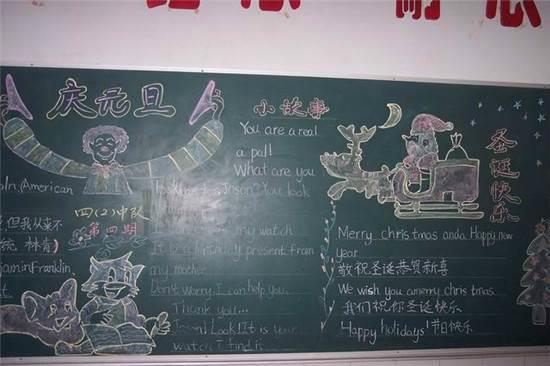 庆元旦
coln, American
, 但我从来不
林肯)
jamin Franklin,
四(2)中队
第四期
小故事
You are a real
a pall
What are you
Jason? You look
my watch
It is a present from
my mother.
Don't worry. I can help you.
Thank you...
Jason! Look! It is your
watch. I find it
圣诞快乐
Merry christmas anda Happy new
year
敬祝圣诞恭贺新喜
We wish you amerry christmas
我们祝你圣诞快乐
Happy holidays! 节日快乐